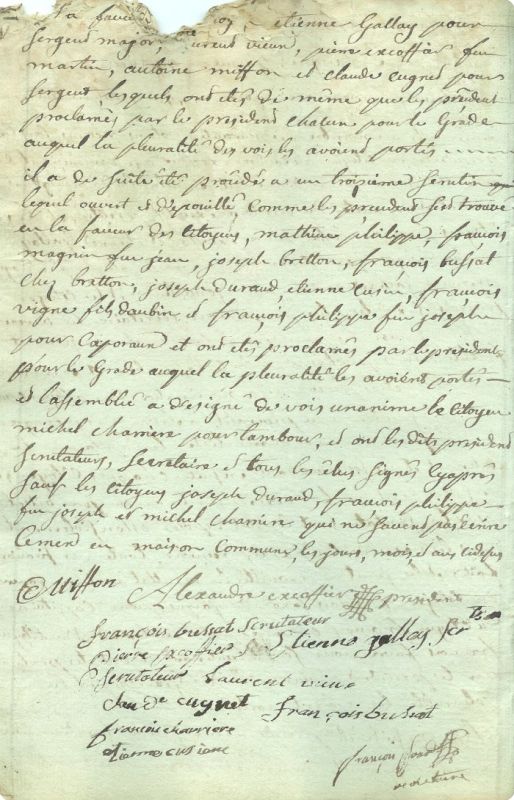 la faveur etienne Gallay pour
sergent major, Laurent vieux, pierre excoffier feu
martin, antoine miffon et claude cugnet pour
sergent lesquels ont étés de même que les prēcedent
proclamés par le président chacun pour le Grade
auquel la pluralité des voix les avoient portés
il a de suitte été procédé a un troisième scrutin
lequel ouvert et dépouillé comme les precedent s'est trouvé
en la faveur des Citoyens, mathieu philippe, françois
magnin feu jean, joseph bretton, françois bussat
chez bretton, joseph durand etienne cusin, françois
vigne fils daubin et françois philippe feu joseph
pour Caporaux et ont étés proclamés par le président
pour le Grade auquel la pluralité les avoient portés
et l'assemblée a designé de voix unanime le Citoyen
michel charriere pour tambour, et ont lesdits president
scrutateurs, secretaire et tous les élus signés cyaprés
sauf les Citoyens joseph durand, françois philippe
feu joseph et michel charriere qui ne savent pas écrire
en maison Commune, les jours, mois, et ans cidesus
Miffon Alexandre excoffier president
françois bussat scrutateur
Pierre Excoffier Etienne gallay
scrutateur laurent vieux
cugnet françois bussat
françois charriere
etienne cusin
françois